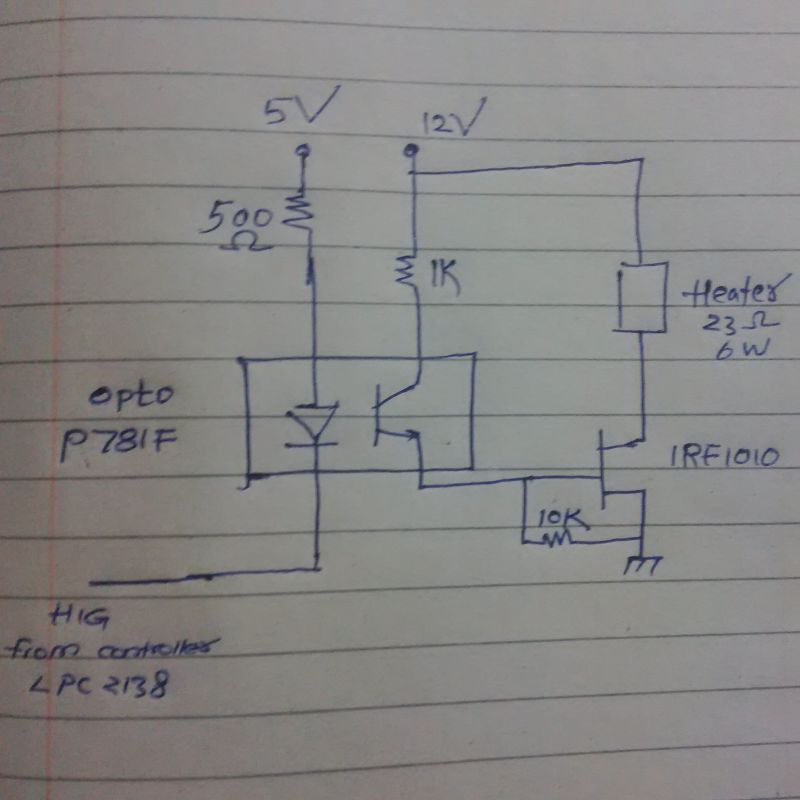 5V
12V
500
Ω
1K
Heater
23Ω
6W
opto
P781F
IRF1010
10K
HIG
from controller
LPC 2138